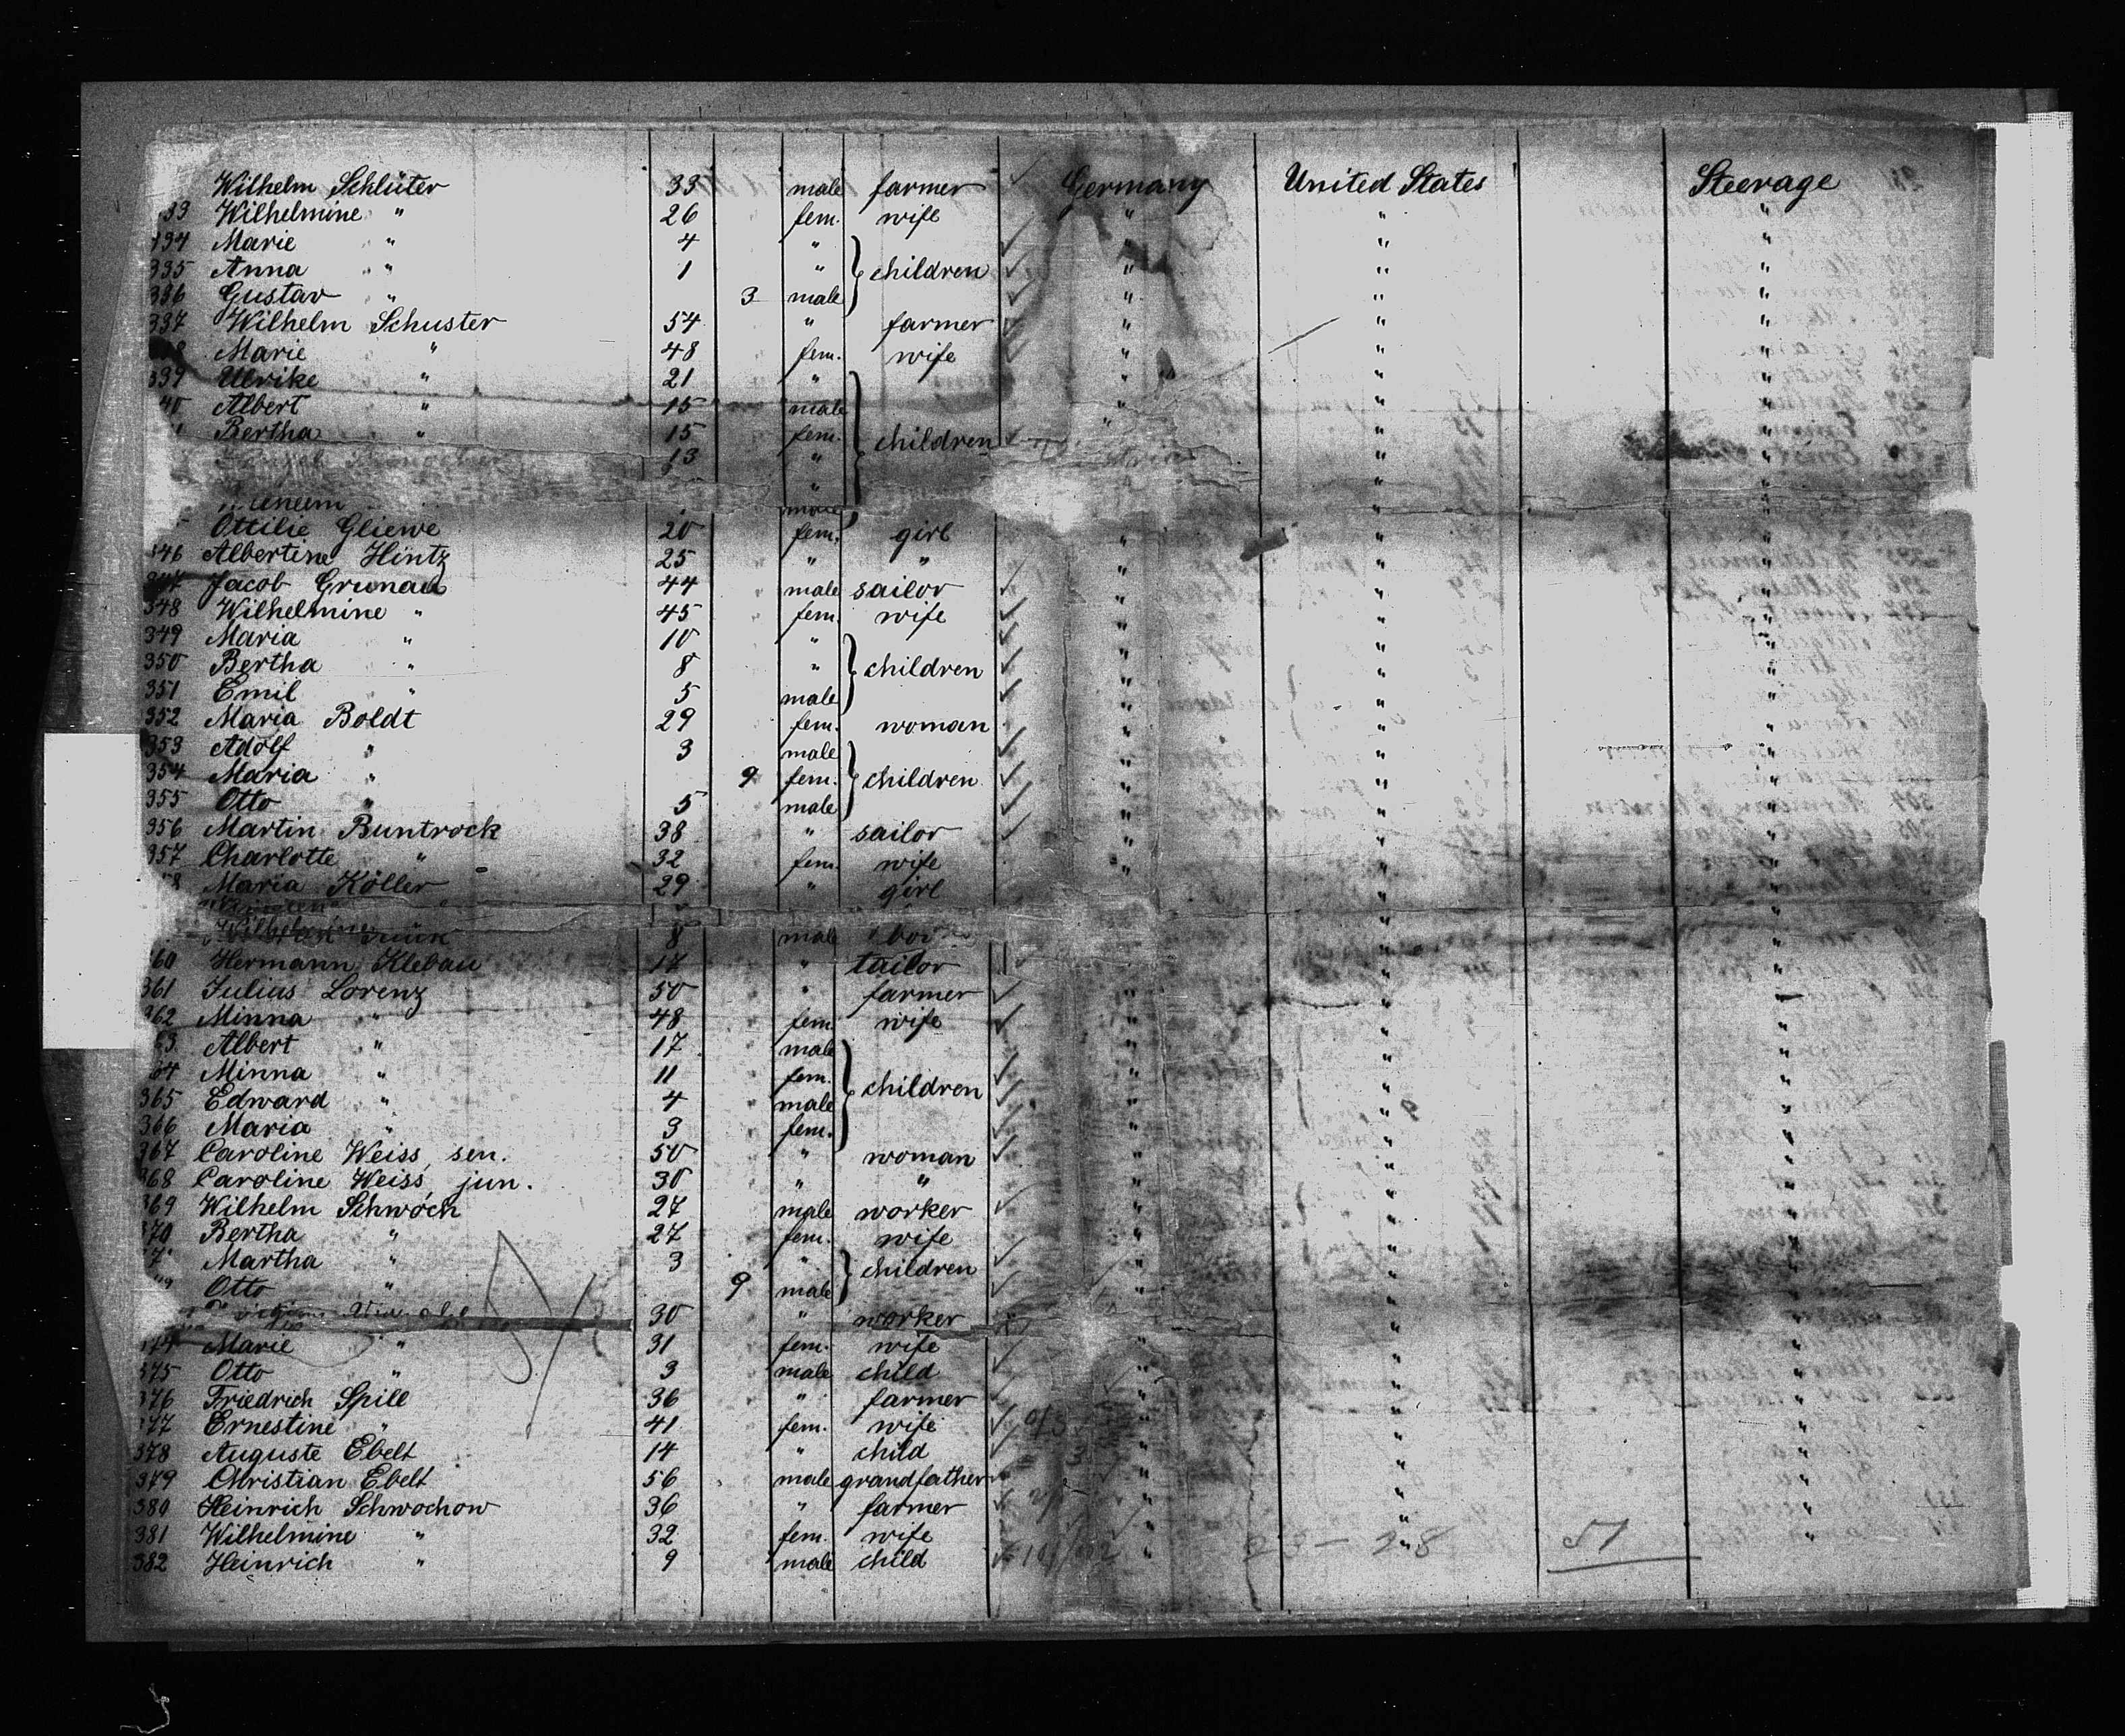 Wilhelm Schlüter 33 male farmer Germany United States Steerage
Wilhelmine " 26 fem. wife " " "
334 Marie " 4 " " " "
335 Anna " 1 " children " " "
336 Gustav " 3 male " " "
337 Wilhelm Schuster 54 " farmer " " "
Marie " 48 fem. wife " " "
339 Ulrike " 21 " " " "
40 Albert " 15 male " " "
Bertha " 15 fem. children " " "
13 " " "
" " "
Ottilie Gliewe 20 fem. girl " " "
346 Albertine Hintz 25 " " " " "
347 Jacob Grunau 44 male sailor " " "
348 Wilhelmine " 45 fem. wife " " "
349 Maria " 10 " " " "
350 Bertha " 8 " children " " "
351 Emil " 5 male " " "
352 Maria Boldt 29 fem. woman " " "
353 Adolf " 3 male " " "
354 Maria " 9 fem. children " " "
355 Otto " 5 male " " "
356 Martin Buntrock 38 " sailor " " "
357 Charlotte " 32 fem. wife " " "
Maria Köller 29 " girl " "
8 male boy " "
60 Hermann Klebau 17 " tailor " " "
361 Julius Lorenz 50 " farmer " " "
362 Minna " 48 fem. wife " " "
63 Albert " 17 male " " "
64 Minna " 11 fem. children " " "
365 Edward " 4 male " " "
366 Maria " 3 fem. " " "
367 Caroline Weiss, sen. 50 " woman " " "
368 Caroline Weiss, jun. 30 " " " " "
369 Wilhelm Schwoch 27 male worker " " "
370 Bertha " 27 fem. wife " " "
Martha " 3 " children " " "
Otto " 9 male " " "
30 " worker " "
374 Marie " 31 fem. wife " " "
375 Otto " 3 male child " " "
376 Friedrich Spill 36 " farmer " " "
377 Ernestine " 41 fem. wife " " "
378 Auguste Ebelt 14 " child " " "
379 Christian Ebelt 56 male grandfather " " "
380 Heinrich Schwochow 36 " farmer " " "
381 Wilhelmine " 32 fem. wife " " "
382 Heinrich " 9 male child " 23 - 28 51